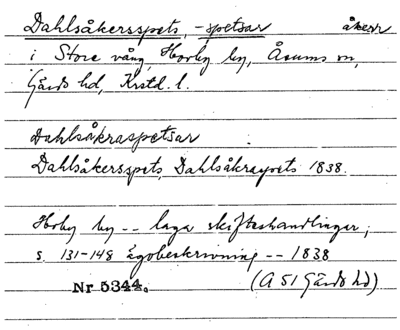 Dahlsåkersspets, -spetsar åkrar
i Store vång, Horby by, Åsums sn,
Gärds hd, Krstd. l.
Dahlsåkraspetsar
Dahlsåkersspets, Dahlsåkraspets 1838.
Horby by -- laga skifteshandlingar,
s. 131-148 ägobeskrivning -- 1838
Nr 5344. (A 51 Gärds hd)